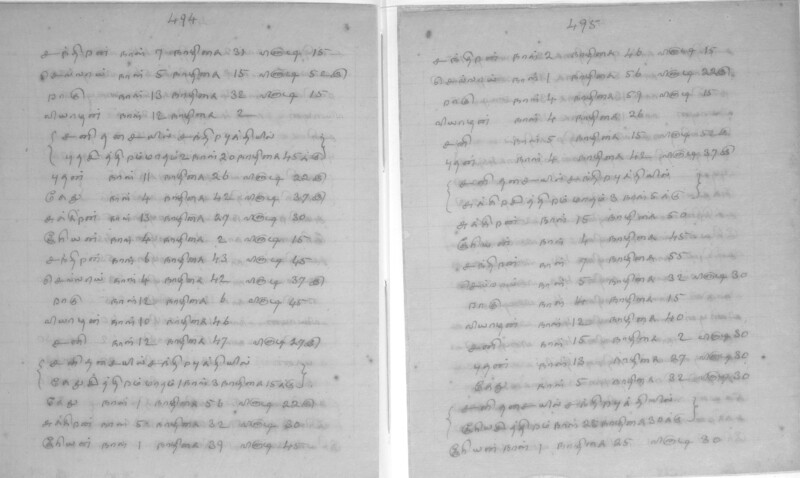 494
சந்திரன் நாள் 7 நாழிகை 31 விநாடி 15
செவ்வாய் நாள் 5 நாழிகை 15 விநாடி 52½
ராகு நாள் 13 நாழிகை 32 விநாடி 15
வியாழன் நாள் 12 நாழிகை 2
சனி தசையில் சந்திரபுத்தியில்
புதன் நாள் 11 நாழிகை 26 விநாடி 22½
கேது நாள் 4 நாழிகை 42 விநாடி 37½
சுக்கிரன் நாள் 13 நாழிகை 27 விநாடி 30
சூரியன் நாள் 4 நாழிகை 2 விநாடி 15
சந்திரன் நாள் 6 நாழிகை 43 விநாடி 45
செவ்வாய் நாள் 4 நாழிகை 42 விநாடி 37½
ராகு நாள் 12 நாழிகை 6 விநாடி 45
வியாழன் நாள் 10 நாழிகை 46
சனி நாள் 12 நாழிகை 47 விநாடி 7½
சனி தசையில் சந்திரபுத்தியில்
கேது நாள் 1 நாழிகை 56 விநாடி 22½
சுக்கிரன் நாள் 5 நாழிகை 32 விநாடி 30
சூரியன் நாள் 1 நாழிகை 39 விநாடி 45
495
சந்திரன் நாள் 2 நாழிகை 46 விநாடி 15
செவ்வாய் நாள் 1 நாழிகை 56 விநாடி 22½
ராகு நாள் 4 நாழிகை 59 விநாடி 15
வியாழன் நாள் 4 நாழிகை 26
சனி நாள் 5 நாழிகை 15 விநாடி 52½
புதன் நாள் 4 நாழிகை 42 விநாடி 37½
சனி தசையில் சந்திரபுத்தியில்
சுக்கிரன் நாள் 15 நாழிகை 50
சூரியன் நாள் 4 நாழிகை 45
சந்திரன் நாள் 7 நாழிகை 55
செவ்வாய் நாள் 5 நாழிகை 32 விநாடி 30
ராகு நாள் 14 நாழிகை 15
வியாழன் நாள் 12 நாழிகை 40
சனி நாள் 15 நாழிகை 2 விநாடி 30
புதன் நாள் 13 நாழிகை 27 விநாடி 30
கேது நாள் 5 நாழிகை 32 விநாடி 30
சனி தசையில் சந்திரபுத்தியில்
சூரியன் நாள் 1 நாழிகை 25 விநாடி 30